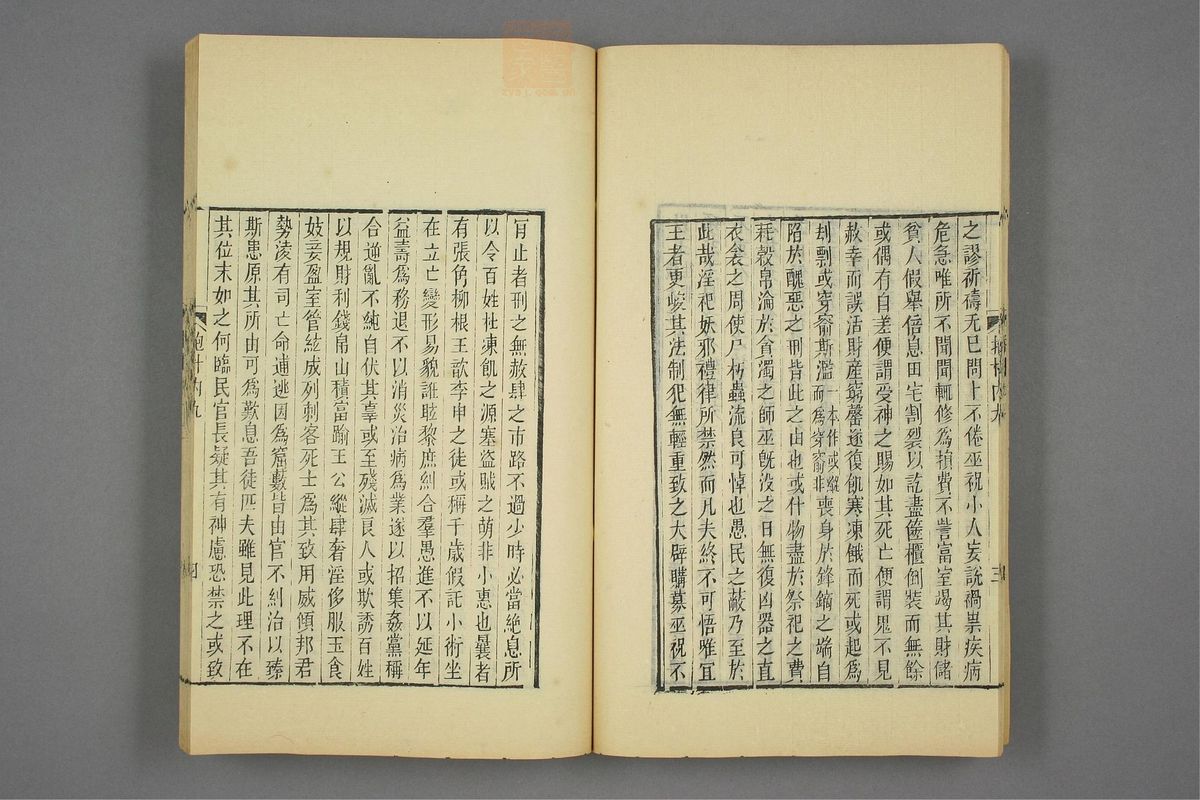 之謬祈禱无已問卜不倦巫祝小人妄說禍祟疾病
危急唯所不聞聞輒修為損費不訾富室竭其財儲
貧人假舉倍息田宅割裂以訖盡篋櫃倒装而無餘
或偶有自差便謂受神之賜如其死亡便謂鬼不見
赦幸而誤活財產窮罄遂復飢寒凍餓而死或起為
刦剽或穿窬斯濫一本作或縱而為穿窬非喪身於鋒鏑之端自
陷於醜惡之刑皆此之由也或什物盡於祭祀之費
耗穀帛淪於貪濁之師巫旣没之日無復凶器之直
衣衾之周使尸朽蟲流良可悼也愚民之蔽乃至於
此哉淫祀妖邪禮律所禁然而凡夫終不可悟唯宜
王者更峻其法制犯無輕重致之大辟購募巫祝不
肎止者刑之無赦肆之市路不過少時必當絶息所
以令百姓杜凍飢之源塞盜賊之萌非小惠也曩者
有張角柳根王歆李申之徒或稱千歲假託小術坐
在立亡變形易貌誑眩黎庶糾合羣愚進不以延年
益壽爲務退不以消災治病爲業遂以招集姦黨稱
合逆亂不純自伏其辜或至殘滅良人或欺誘百姓
以規財利錢帛山積富踰王公縱肆奢淫侈服玉食
妓妾盈室管絃成列刺客死士爲其致用威傾邦君
勢淩有司亡命逋逃因爲窟藪皆由官不糾治以臻
斯患原其所由可爲歎息吾徒匹夫雖見此理不在
其位末如之何臨民官長疑其有神慮恐禁之或致
抱朴內九
三
抱朴內九
四